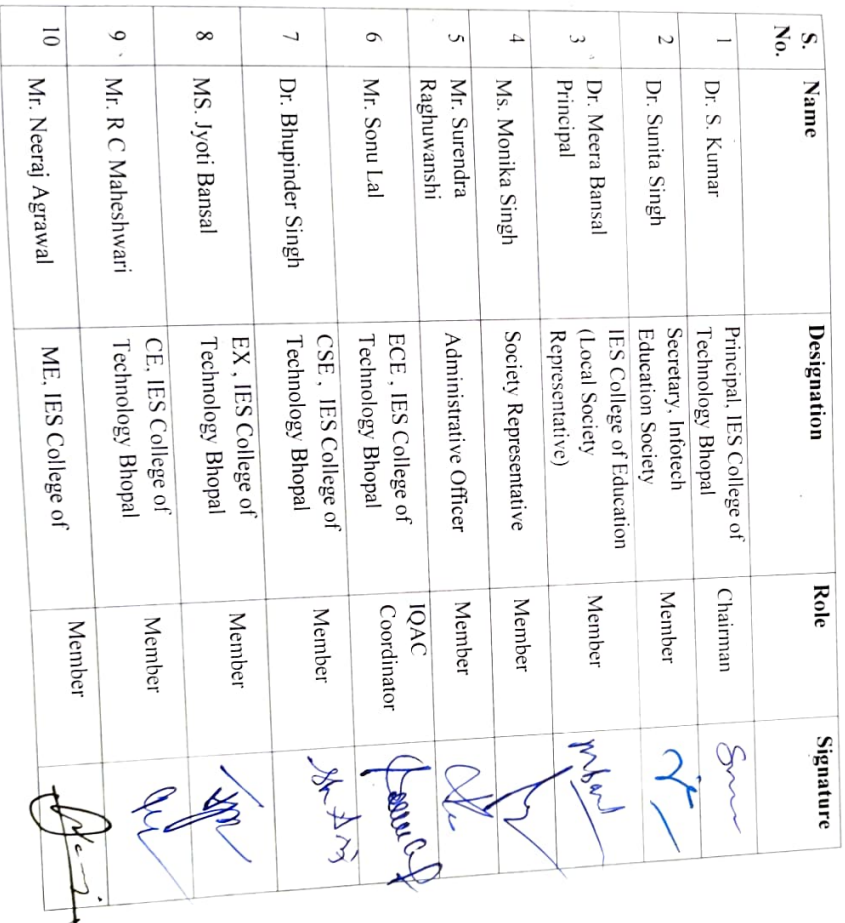 S. No. Name Designation Role Signature
1 Dr. S. Kumar Principal, IES College of Technology Bhopal Chairman
2 Dr. Sunita Singh Secretary, Infotech Education Society Member
3 Dr. Meera Bansal Principal IES College of Education (Local Society Representative) Member
4 Ms. Monika Singh Society Representative Member
5 Mr. Surendra Raghuwanshi Administrative Officer Member
6 Mr. Sonu Lal ECE , IES College of Technology Bhopal IQAC Coordinator
7 Dr. Bhupinder Singh CSE , IES College of Technology Bhopal Member
8 MS. Jyoti Bansal EX , IES College of Technology Bhopal Member
9 Mr. R C Maheshwari CE, IES College of Technology Bhopal Member
10 Mr. Neeraj Agrawal ME, IES College of Member